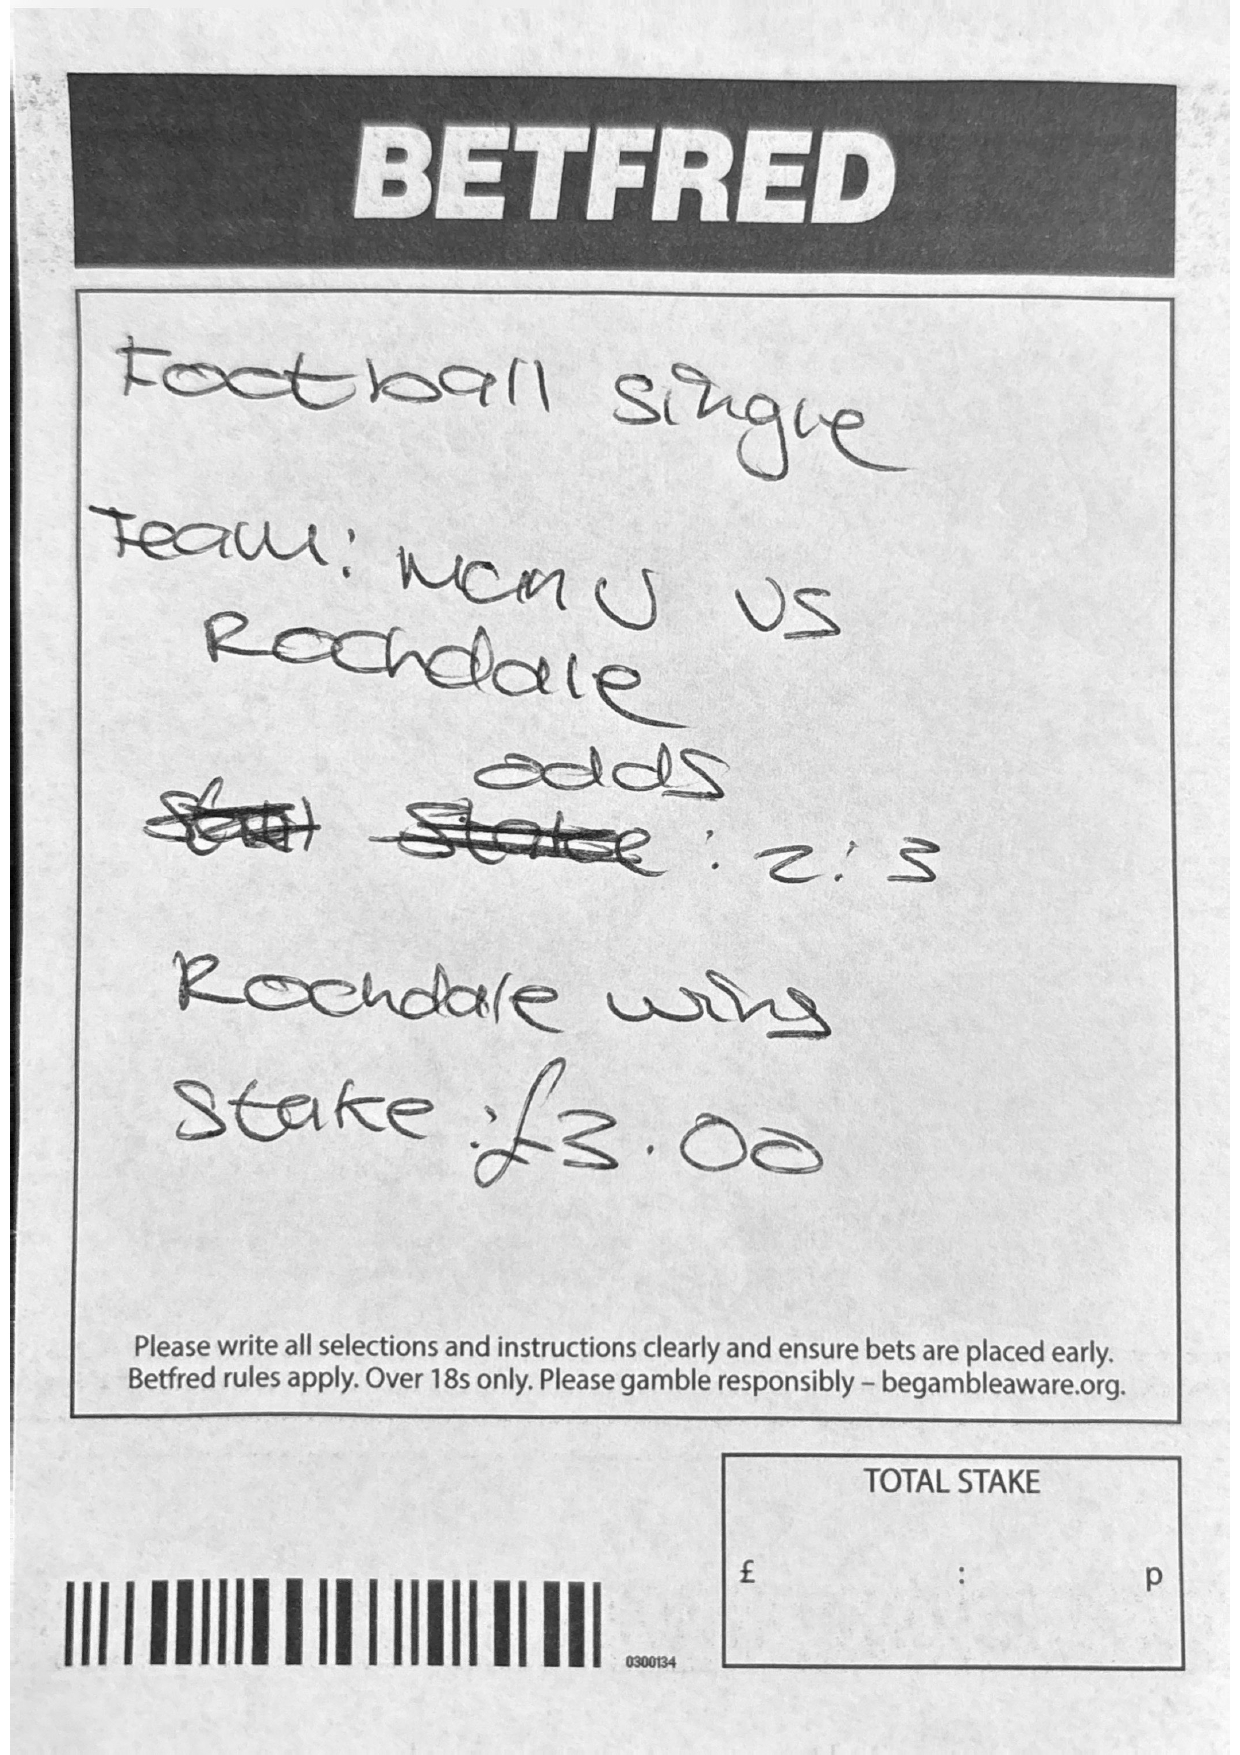 BETFRED
Football single
Team: Man U vs
Rochdale
odds
: 2:3
Rochdale wins
Stake :£3.00
Please write all selections and instructions clearly and ensure bets are placed early.
Betfred rules apply. Over 18s only. Please gamble responsibly – begambleaware.org.
TOTAL STAKE
£ : p
0300134